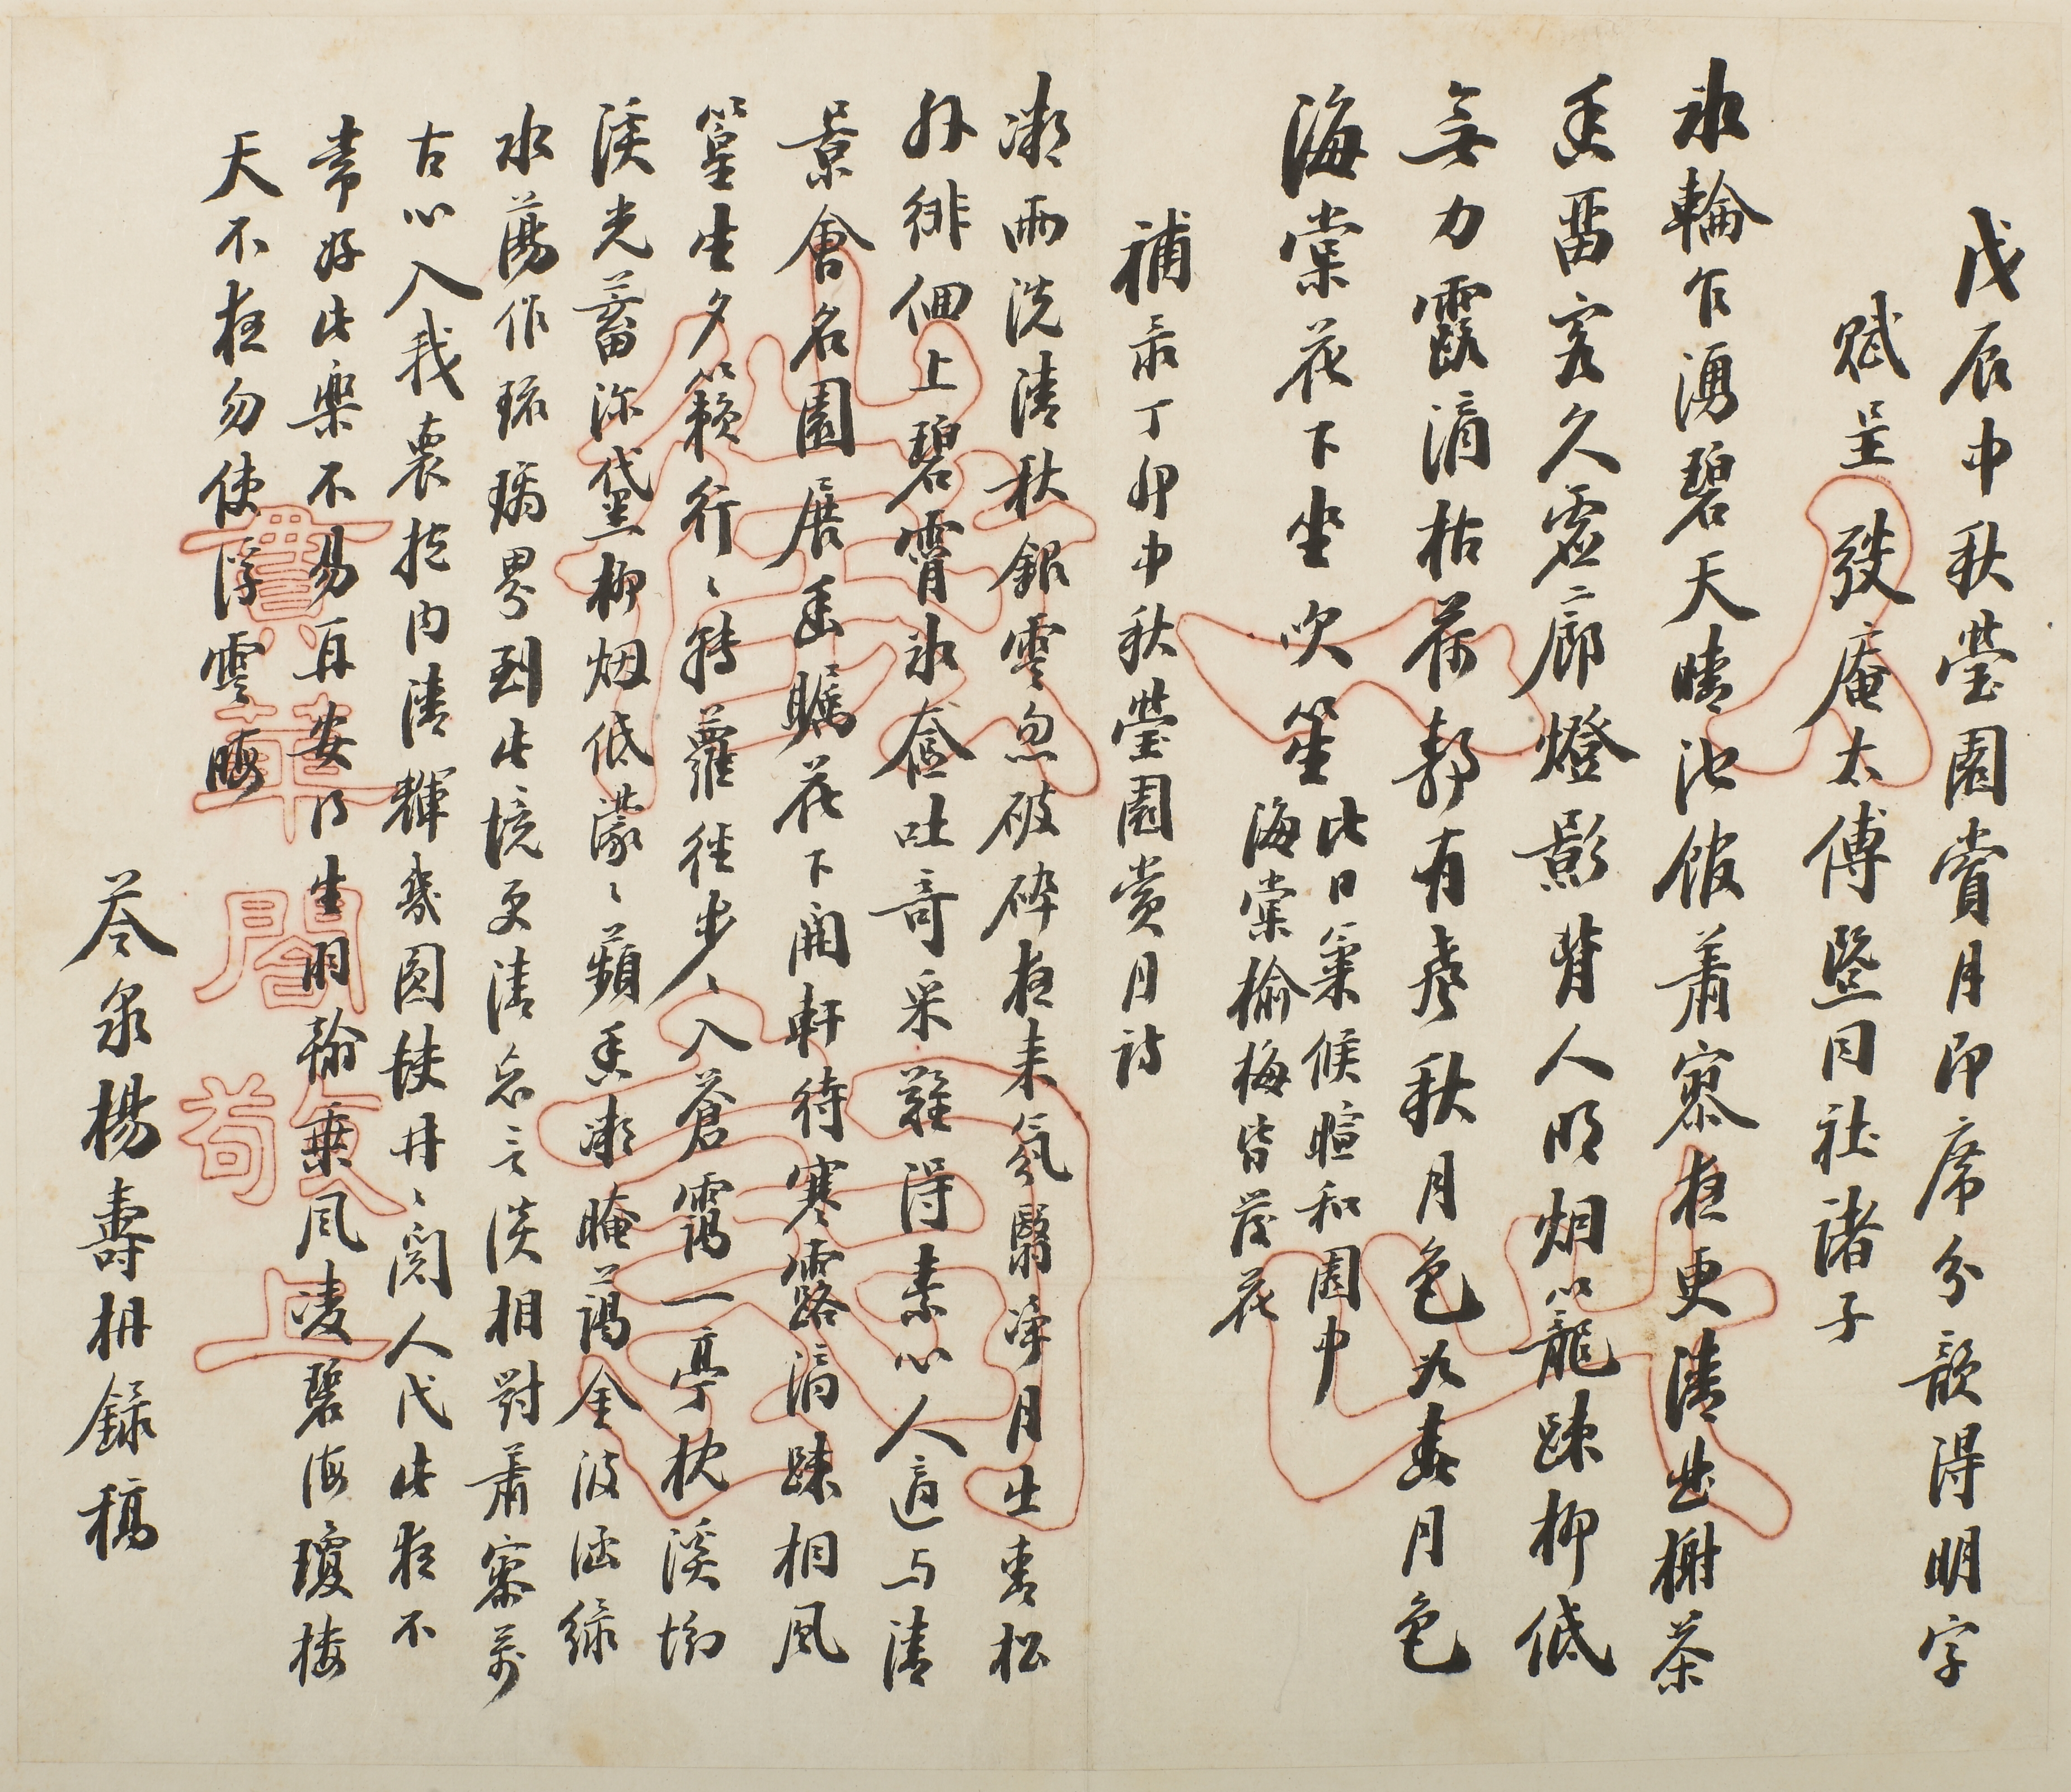 戊辰中秋蛰園賞月即席分韻得明字
賦呈弢庵太傅暨同社諸子
冰輪乍湧碧天晴池館蕭寥夜更清曲榭茶
香留客久虛廊燈影背人明烟籠疎柳低
無力露滴枯荷静有聲秋月色如春月色
海棠花下坐吹笙
此日氣候暄和園中
海棠榆梅皆著花
補录丁卯中秋蛰園赏月詩
凉雨洗清秋銀雲忽破碎夜来氛翳净月出青松
外徘徊上碧霄冰奩吐奇采難得素心人適与清
景會名園展遥矚花下開軒待寒露滴疎桐風
篁生夕籟行行轉蘿徑步步入蒼靄一亭枕溪坳
溪光蓄深黛柳烟低濛濛蘋香凉晻藹金波涵緑
水蕩作琉璃界到此境更清忘言淡相對蕭寥萬
古心入我裏抱内清輝幾圆缺冉冉閲人代此夜不
常好此樂不易再安得生羽翰乘風凌碧海瓊楼
天不夜勿使浮雲晦
苓泉楊壽枏録稿
寶華閣
敬苟上